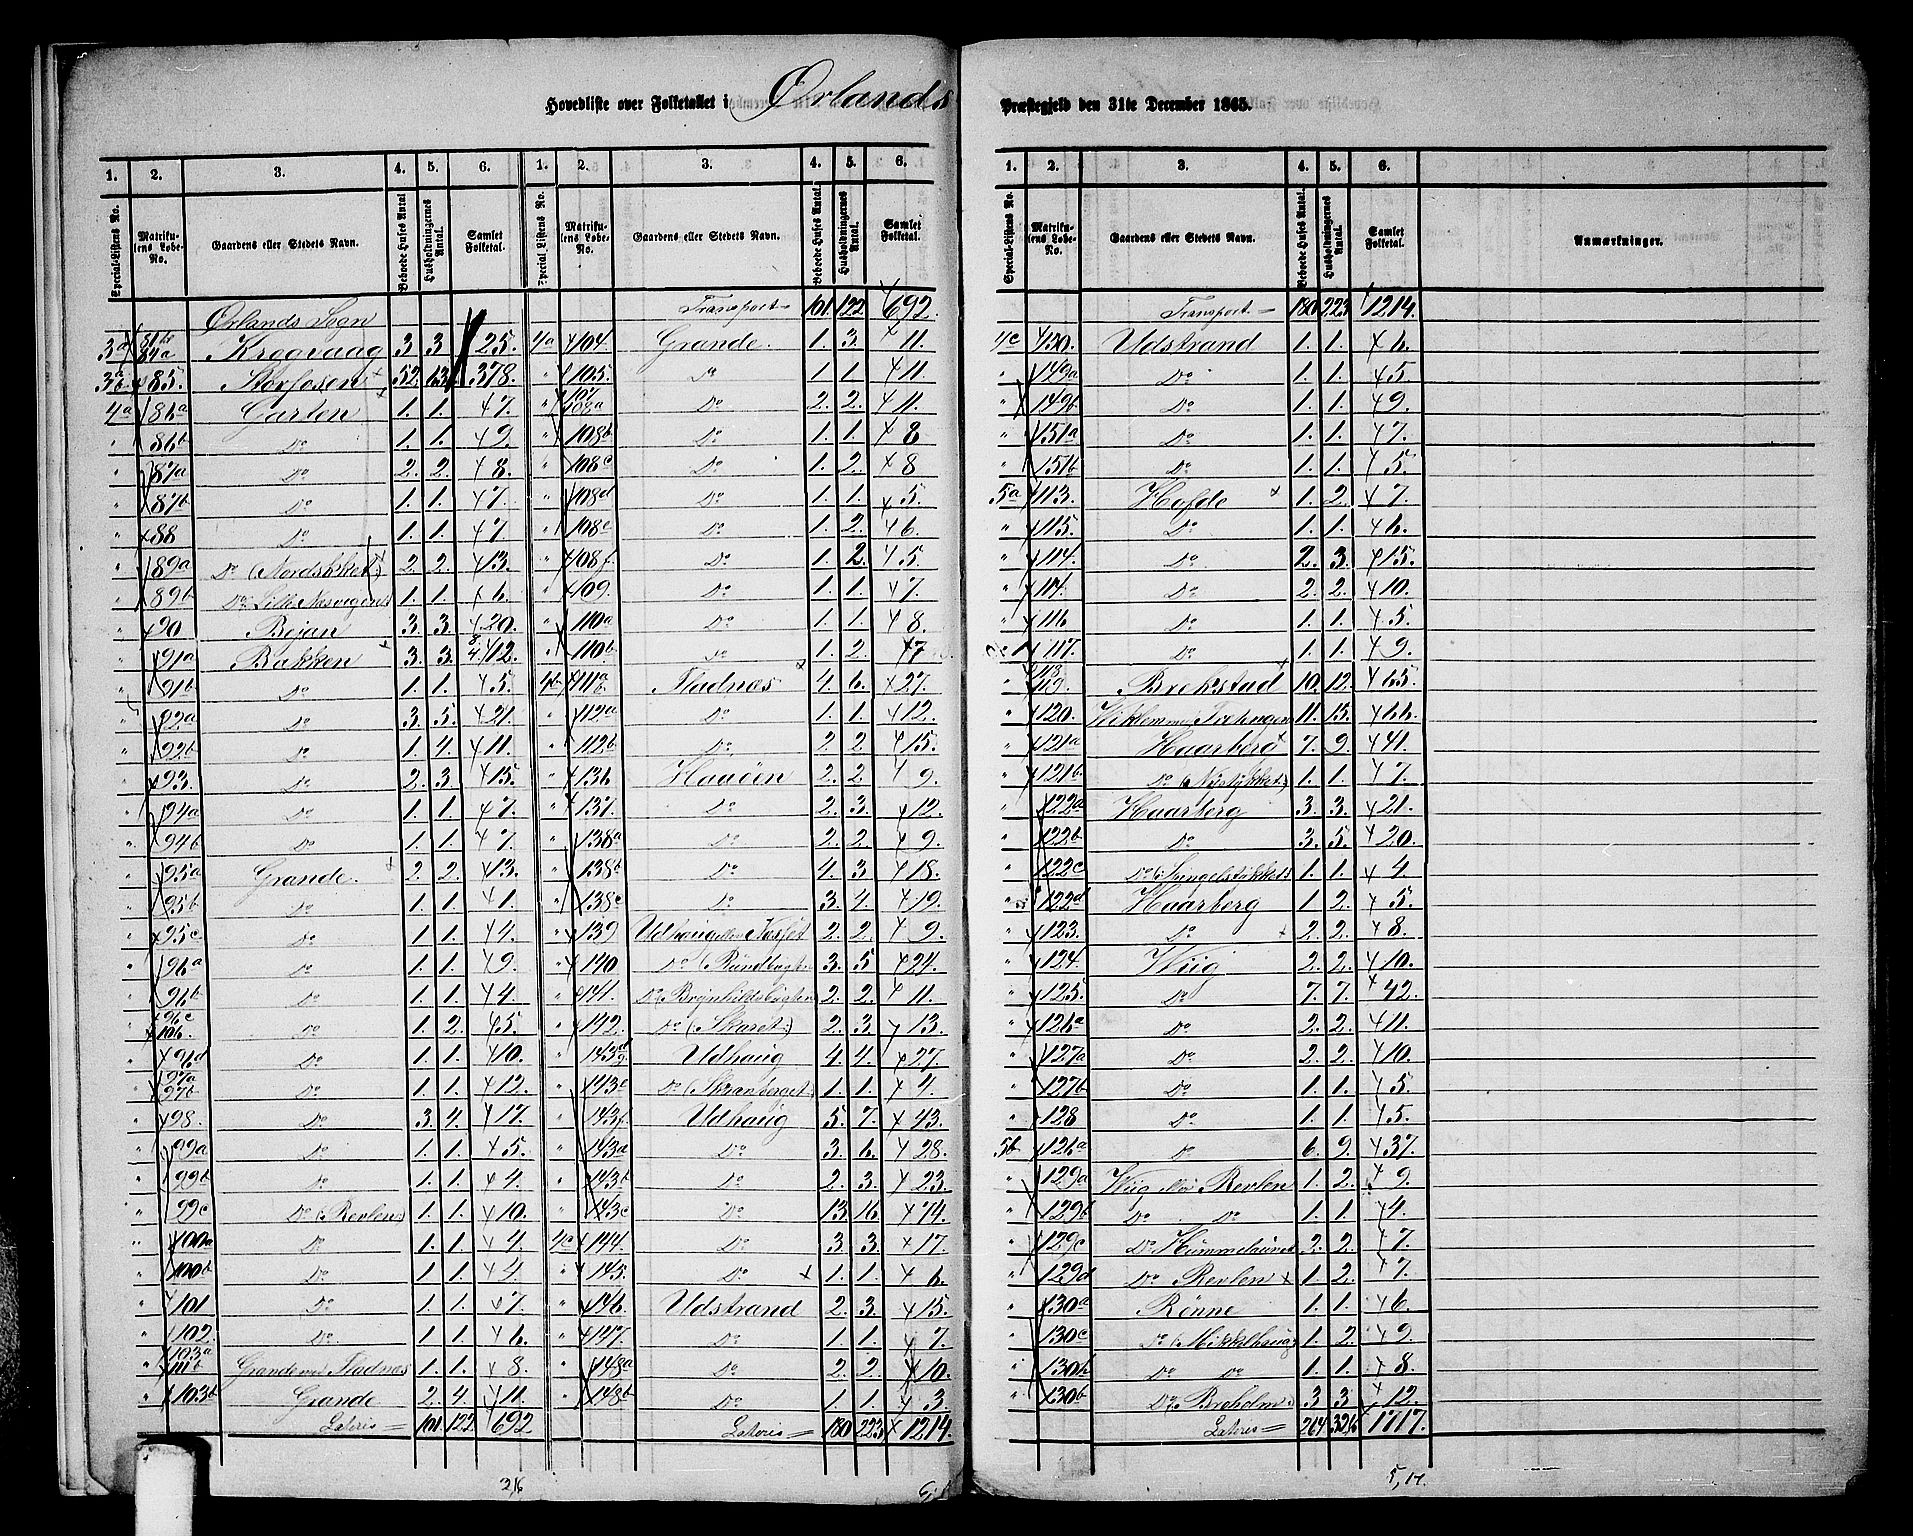 Hovedliste over Folketallet i Ørlands Præstegjeld den 31te December 1865.
1. 2. 3. 4. 5. 6. 1. 2. 3. 4. 5. 6.
Special-Listens No. Matrikulens Løbe-No. Gaardens eller Stedets Navn. Beboede Huses Antal Husholdningernes Antal. Samlet Folketal. Special Listens No. Matrikulens Løbe-No. Gaardens eller Stedets Navn. Beboede Huses Antal. Husholdningernes Antal. Samlet Folketal.
Ørlands Sogn
3a 84a Kraavaag 3 3 25.
3b 85. Storfosen 52. 63. 378.
4a 86a Garten 1. 1. 7.
" 86b Do 1. 1. 9.
" 87a Do 2. 2. 8.
" 87b Do 1. 1. 7.
" 88 Do 1. 1. 7.
" 89a Do (Nordstykket) 2. 2. 13.
" 89b Do Lille Næsvegen 1. 1. 6.
" 90 Bejan 3. 3. 20.
" 91a Bakken 3. 3. 12.
" 91b Do 1. 1. 5.
" 92a Do 3. 5. 21.
" 92b Do 1. 1. 11.
" 93. Do 2. 3. 15.
" 94a Do 1. 1. 7.
" 94b Do 1. 1. 7.
" 95a Grande. 2. 2. 13.
" 95b Do 1. 1. 1.
" 95c Do 1. 1. 4.
" 96a Do 1. 1. 9.
" 96b Do 1. 1. 4.
" 96c 106. Do 1. 2. 5.
" 96d Do 1. 1. 10.
" 97a 97b Do 1. 1. 12.
" 98. Do 3. 4. 17.
" 99a Do 1. 1. 5.
" 99b Do 1. 1. 4.
" 99c Do (Revlen) 1. 1. 10.
" 100a Do 1. 1. 4.
" 100b Do 1. 1. 4.
" 101 Do 1. 1. 7.
" 102. Do 1. 1. 6.
" 103a 111b Grande med Fladnæs 1. 1. 8.
" 103b Grande 2. 4. 11.
Lateris = 101. 122 692.
Transport = 101. 122 692.
4a 104. Grande. 1. 3. 11.
" 105. Do 1. 1. 11.
" 107 108a Do 2. 2. 11.
" 108b Do 1. 1. 8
" 108c Do 1. 2. 8
" 108d Do 1. 1. 5.
" 108e Do 1. 2. 6.
" 108f. Do 1. 2. 5.
" 109. Do 1. 1. 7.
" 110a Do 1. 1. 8.
" 110b Do 1. 2. 7
4b 111a Fladnæs 4. 6. 27.
" 112a Do 1. 1. 12.
" 112b Do 2. 2. 15.
" 136 Haaöen 2. 2. 9.
" 137. Do 2. 3. 12.
" 138a Do 2. 2. 9.
" 138b Do 4. 3. 18.
" 138c Do 3. 4. 19.
" 139 Udhaug eller Næsset 2. 2. 9.
" 140 Do (Rundbugten 3. 5 24.
" 141. Do Brynhildsbugten 2. 2. 11.
" 142. Do (Skaret) 2. 3. 13.
" 143d Udhaug 4. 4. 27.
" 143e Do (Skranberget) 1. 1. 4.
" 143f Udhaug 5. 7. 43.
" 143a Do 3. 6. 28.
" 143b Do 2. 3. 23.
" 143c Do 13. 16. 74.
4c 144. Do 3. 3. 17.
" 145. Do 1. 1. 6.
" 146. Udstrand 2. 3. 15.
" 147. Do 1. 1. 7.
" 148a Do 2. 2. 10.
" 148b Do 1. 1. 3.
Lateris = 180 223 1214.
1. 2. 3. 4. 5. 6.
Special-Listens No. Matrikulens Løbe-No. Gaardens eller Stedets Navn. Beboede Huses Antal. Husholdningernes Antal Samlet Folketal. Anmærkninger.
Transport = 180 223 1214.
4c 150. Udstrand 1. 1. 6.
" 149a Do 1. 1. 5.
149b Do 1. 1. 9.
" 151a Do 1. 1. 7.
" 151b Do 1. 1. 5.
5a 113. Hofde 1. 2. 7.
" 115. Do 1. 1. 6.
" 114. Do 2. 3. 15.
" 114. Do 2. 2. 10.
" 116 Do 1. 1. 5.
117. Do 1. 1. 9.
" 119. Brekstad 10. 12. 65.
" 120. Viklem 11. 15. 66.
" 121a Haarberg 7. 9. 41.
" 121b Do (Nystykket) 1. 1. 7.
" 122a Haarberg 3. 3. 21.
" 122b Do 3. 5. 20.
" 122c Do (Hengelstykket) 1. 1. 4
" 122d Haarberg 1. 2. 5.
" 123. Do 2. 2. 8.
" 124. Wiig 2. 2. 10.
" 125. Do 7. 7. 42.
" 126a Do 2. 2. 11.
" 127a Do 2. 2. 10.
" 127b Do 1. 1. 5.
" 128 Do 1. 1. 5.
5b 126a Do 6. 9. 37.
" 129a Wiig eller Revlen 1. 2. 9.
" 129b Do Do 1. 1. 4.
" 129c Do Hummelauret 2. 2. 7
" 129d Do Revlen 1. 2. 7.
" 130a Rönne 1. 1. 6
" 130c Do (Mikkelhaug) 1. 2. 9.
" 130h Do Do 1. 1. 8
" 130b Do Breholm 3 3 12.
Lateris = 264 326 1717.
26
5,17.